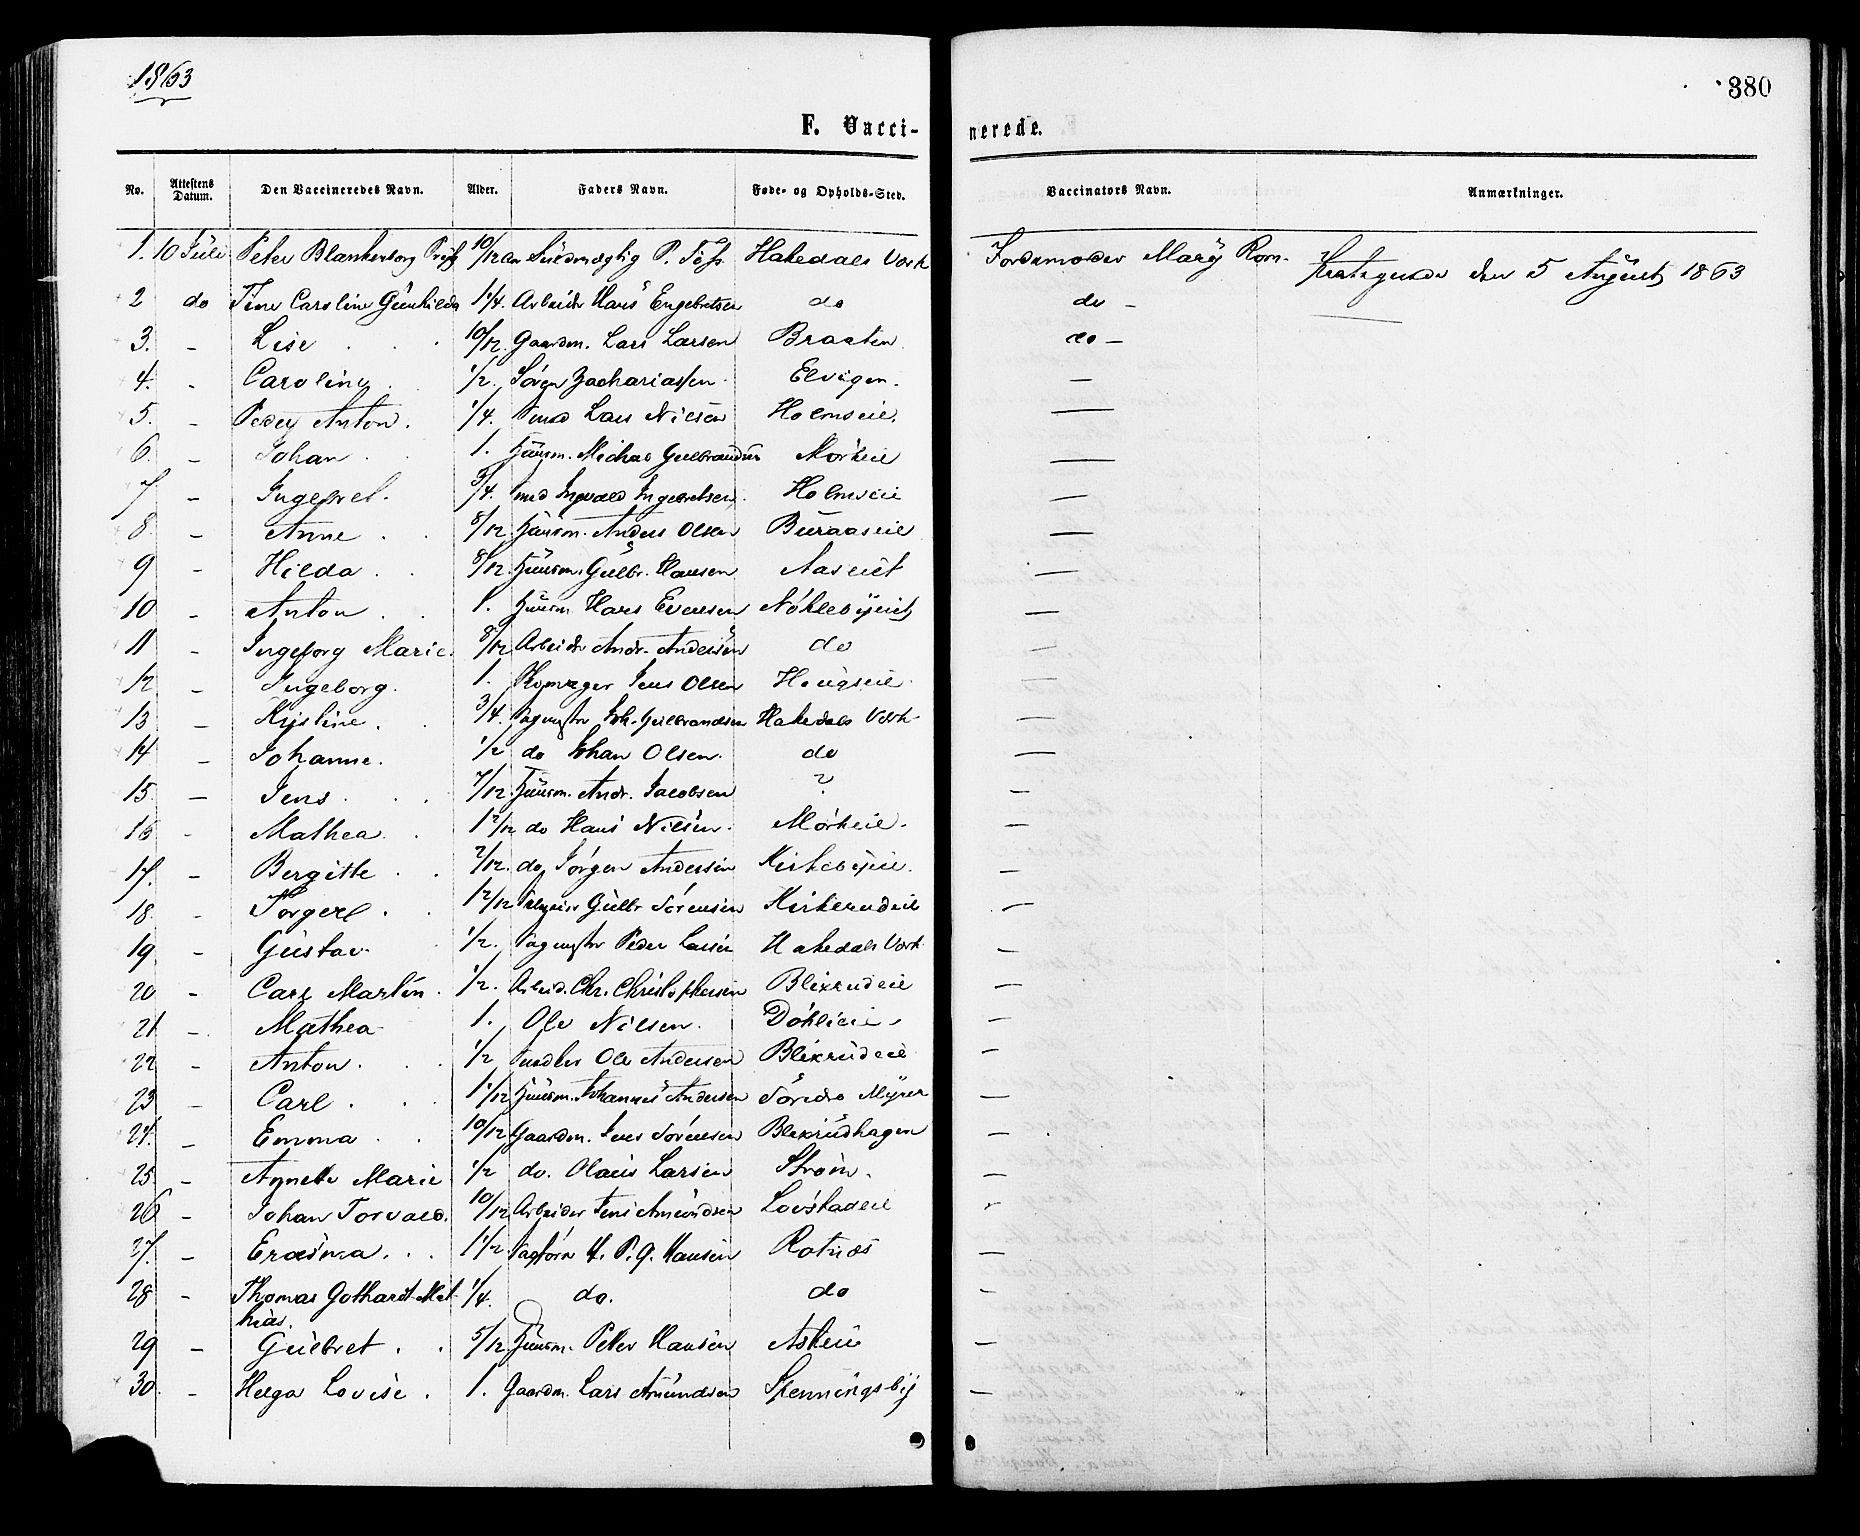 1863
380
F. Vacci-
nerede.
No. Attestens Datum. Den Vaccineredes Navn. Alder. Faders Navn. Føde- og Opholds-Sted. Vaccinators Navn. Anmærkninger.
1. 10 Juli Peter Blankenborg 10/12 P. Hakedals Værk Jordemoder Mary den 5 August 1863
2 do Tine Caroline Gunhilda 1 1/4. Arbeider Hans Engebretsen do do -
3. - Lise 10/12. Gaardm. Lars Larsen Braaten do -
4. - Caroline 1/2. Søren Zachariassen Elvigen. —
5. - Peder Anton. 1/4. Smed Lars Nilsen Holmseie. —
6. - Johan 1. Huusm. Michael Gulbrandsen Mørkeie —
7 - Ingebret. 3/4. Smed Ingvald Ingebretsen Holmseie —
8. - Anne 8/12 Huusm. Anders Olsen Buraaseie —
9 - Hilda 8/12. Huusm. Gulbr. Hansen Aaseiet —
10 - Anton 1. Huusm. Hans Evensen Nöklebyeiet —
11 - Ingeborg Marie. 8/12 Arbeider Andr. Andersen do —
12 - Ingeborg. 1. Jens Olsen Haugseie —
13 - Kristine. 3/4. Joh. Gulbrandsen Hakedals Værk —
14 - Johanne. 1/2 do Johan Olsen. do —
15 - Jens 7/12. Huusm. Andr. Jacobsen ? —
16 - Mathea 1 2/12 do Hans Nilsen. Mörkeie. —
17. - Bergitte 2/12. do Jörgen Andersen Kirkebyeie. —
18. - Torger 1 2/12 Gulbr Sörensen Kirkerudeie —
19 - Gustav 1/2. Peder Larsen Hakedals Værk —
20 - Carl Martin. 1/2. Arbeid. Chr. Christophersen Blixrudeie —
21 - Mathea 1. Ole Nilsen. Döhlieie —
22 - Anton. 1/2 Ole Andersen Blixrudeie —
23 - Carl. 1 1/12 Huusm. Johannes Andersen Söndre Myrer —
24. - Emma 10/12 Gaardm. Jens Sörensen Blixrudhagen —
25. - Agnete Marie 1/2 do. Olaus Larsen Ström. —
26 - Johan Torvald. 10/12 Arbeider Jens Amundsen Lövstadeie
27. - Erasma 1 1/2 H. P. G. Hansen Rotnæs —
28 - Thomas Gothardt Mat- 1/4. do. do —
hias.
29 - Gulbret 5/12 Huusm. Peter Hansen Askeie —
30. - Helga Lovise. 1. Gaardm. Lars Amundsen Skenningsby —